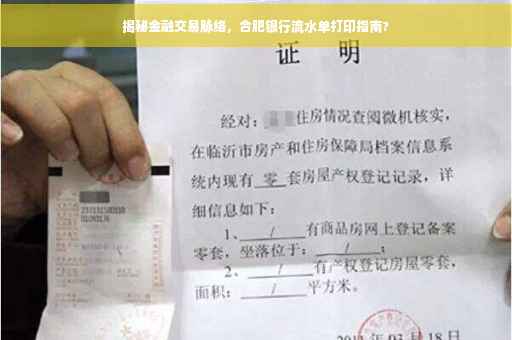 揭秘金融交易脉络，合肥银行流水单打印指南？
证 明
经对：住房情况查阅微机核实，
在临沂市房产和住房保障局档案信息系
统内现有 零 套房屋产权登记记录，详
细信息如下：
1、 / 有商品房网上登记备案
零套，坐落位于： / ；
2、 / 有产权登记房屋零套，
面积： / 平方米。
03 月 18 日